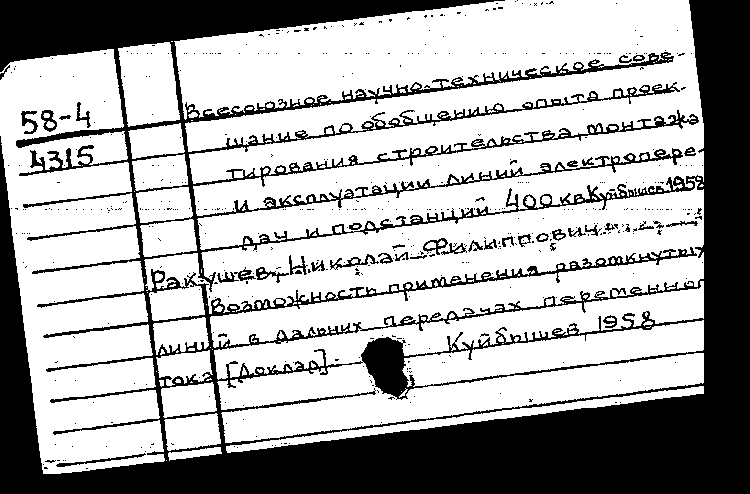 58-4
4315
Всесоюзное научно-техническое сове-
щание по обобщению опыта проек-
тирования строительства, монтажа
и эксплуатации линий электропере-
дач и подстанций 400 кв. Куйбышев, 1958
Ракушев, Николай Филиппович.
Возможность применения разомкнутых
линий в дальних передачах переменного
тока [Доклад]. Куйбышев, 1958